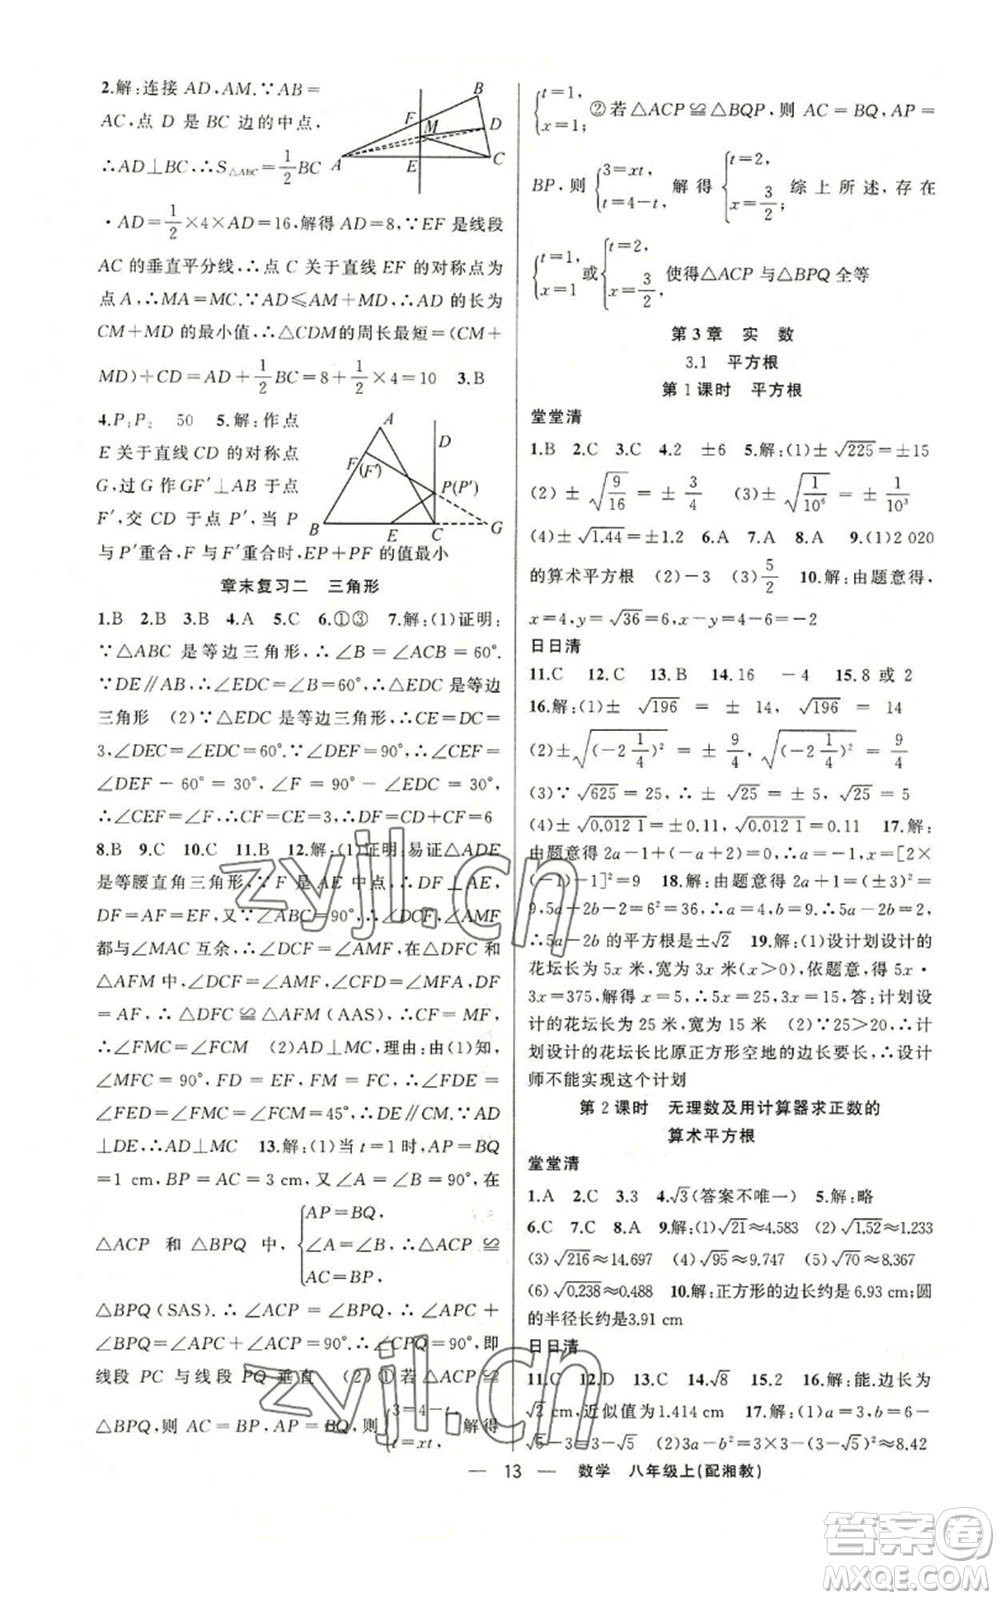 2.解:连接 AD,AM.∵AB=
AC,点 D 是 BC 边的中点,
∴AD⊥BC,∴S△ABC=1/2 BC
·AD=1/2×4×AD=16,解得AD=8,∵EF是线段
AC的垂直平分线,∴点 C 关于直线 EF 的对称点为
点A,∴MA=MC.∵AD≤AM+MD,∴AD 的长为
CM+MD 的最小值,∴△CDM的周长最短=(CM+
MD)+CD=AD+1/2BC=8+1/2×4=10 3.B
4.P₁P₂ 50 5.解:作点
E关于直线CD的对称点
G,过G作GF′⊥AB于点
F′,交 CD 于点 P′,当 P
与P′重合,F与F′重合时,EP+PF的值最小
B
F
M
D
A
E
C
A
D
F
(F′)
P(P′)
B
E
C
G
章末复习二 三角形
1.B 2.B 3.B 4.A 5.C 6.①③ 7.解:(1)证明:
∵△ABC 是等边三角形,∴∠B=∠ACB=60°.
∵DE∥AB,∴∠DEC=∠B=60°,∴△EDC是等边
三角形 (2)∵△EDC是等边三角形,∴CE=DC=
3,∠DEC=∠EDC=60°.∵∠DEF=90°,∴∠CEF=
∠DEF-60°=30°,∠F=90°-∠EDC=30°,
∴∠CEF=∠F,∴CF=CE=3,∴DF=CD+CF=6
8.B 9.C 10.C 11.B 12.解:(1)证明:易证△ADE
是等腰直角三角形,∵F 是 AE 中点,∴DF⊥AE,
DF=AF=EF,又∵∠ABC=90°,∠DCF,∠AMF
都与∠MAC 互余,∴∠DCF=∠AMF,在△DFC 和
△AFM 中,∠DCF=∠AMF,∠CFD=∠MFA,DF
=AF,∴△DFC≌△AFM(AAS),∴CF=MF,
∴∠FMC=∠FCM (2)AD⊥MC,理由:由(1)知,
∠MFC=90°,FD=EF,FM=FC,∴∠FDE=
∠FED=∠FMC=∠FCM=45°,∴DE∥CM,∵AD
⊥DE,∴AD⊥MC 13.解:(1)当 t=1 时,AP=BQ
=1 cm,BP=AC=3 cm,又∠A=∠B=90°,在
△ACP 和△BPQ 中,{AP=BQ, ∠A=∠B, AC=BP, ∴△ACP≌
△BPQ(SAS).∴∠ACP=∠BPQ,∴∠ACP+
∠BPQ=∠APC+∠ACP=90°.∴∠CPQ=90°,即
线段 PC 与线段 PQ 垂直 (2)①若△ACP≌
△BPQ,则 AC=BP,AP=BQ,则{3=4-t, t=xt, 解得
{t=1, x=1; ②若△ACP≌△BQP,则 AC=BQ,AP=
BP,则{3=xt, t=4-t, 解得{t=2, x=3/2; 综上所述,存在
{t=1, x=1或{t=2, x=3/2, 使得△ACP与△BPQ全等
第3章 实 数
3.1 平方根
第1课时 平方根
堂堂清
1.B 2.C 3.C 4.2 ±6 5.解:(1)±√225=±15
(2)±√(9/16)=±3/4 (3)±√(1/10⁶)=±1/10³
(4)±√1.44=±1.2 6.A 7.A 8.A 9.(1)2 020
的算术平方根 (2)-3 (3)5/2 10.解:由题意得,
x=4,y=√36=6,x-y=4-6=-2
日日清
11.C 12.C 13.B 14.16 -4 15.8 或 2
16.解:(1)±√196=±14,√196=14
(2)±√(-2 1/4)²=±9/4,√(-2 1/4)²=9/4
(3)∵√625=25,∴±√25=±5,√25=5
(4)±√0.012 1=±0.11,√0.012 1=0.11 17.解:
由题意得 2a-1+(-a+2)=0,∴a=-1,x=[2×
(-1)-1]²=9 18.解:由题意得 2a+1=(±3)²=
9,5a+2b-2=6²=36,∴a=4,b=9,∴5a-2b=2,
∴5a-2b的平方根是±√2 19.解:(1)设计划设计的
花坛长为5x米,宽为3x米(x>0),依题意,得 5x·
3x=375,解得 x=5,∴5x=25,3x=15,答:计划设
计的花坛长为 25 米,宽为 15 米 (2)∵25>20,∴计
划设计的花坛长比原正方形空地的边长要长,∴设计
师不能实现这个计划
第2课时 无理数及用计算器求正数的
算术平方根
堂堂清
1.A 2.C 3.3 4.√3(答案不唯一) 5.解:略
6.C 7.C 8.A 9.解:(1)√21≈4.583 (2)√1.52≈1.233
(3)√216≈14.697 (4)√95≈9.747 (5)√70≈8.367
(6)√0.238≈0.488 10.解:正方形的边长约是 6.93 cm;圆
的半径长约是3.91 cm
日日清
11.C 12.D 13.C 14.√8 15.2 16.解:能.边长为
√2 cm,近似值为1.414 cm 17.解:a=3,b=6-
√5-3=3-√5,∴3a-b²=3×3-(3-√5)²≈8.42
— 13 — 数学 八年级上(配湘教)
zyjl.cn
zyjl.cn
答案卷
MXQE.COM